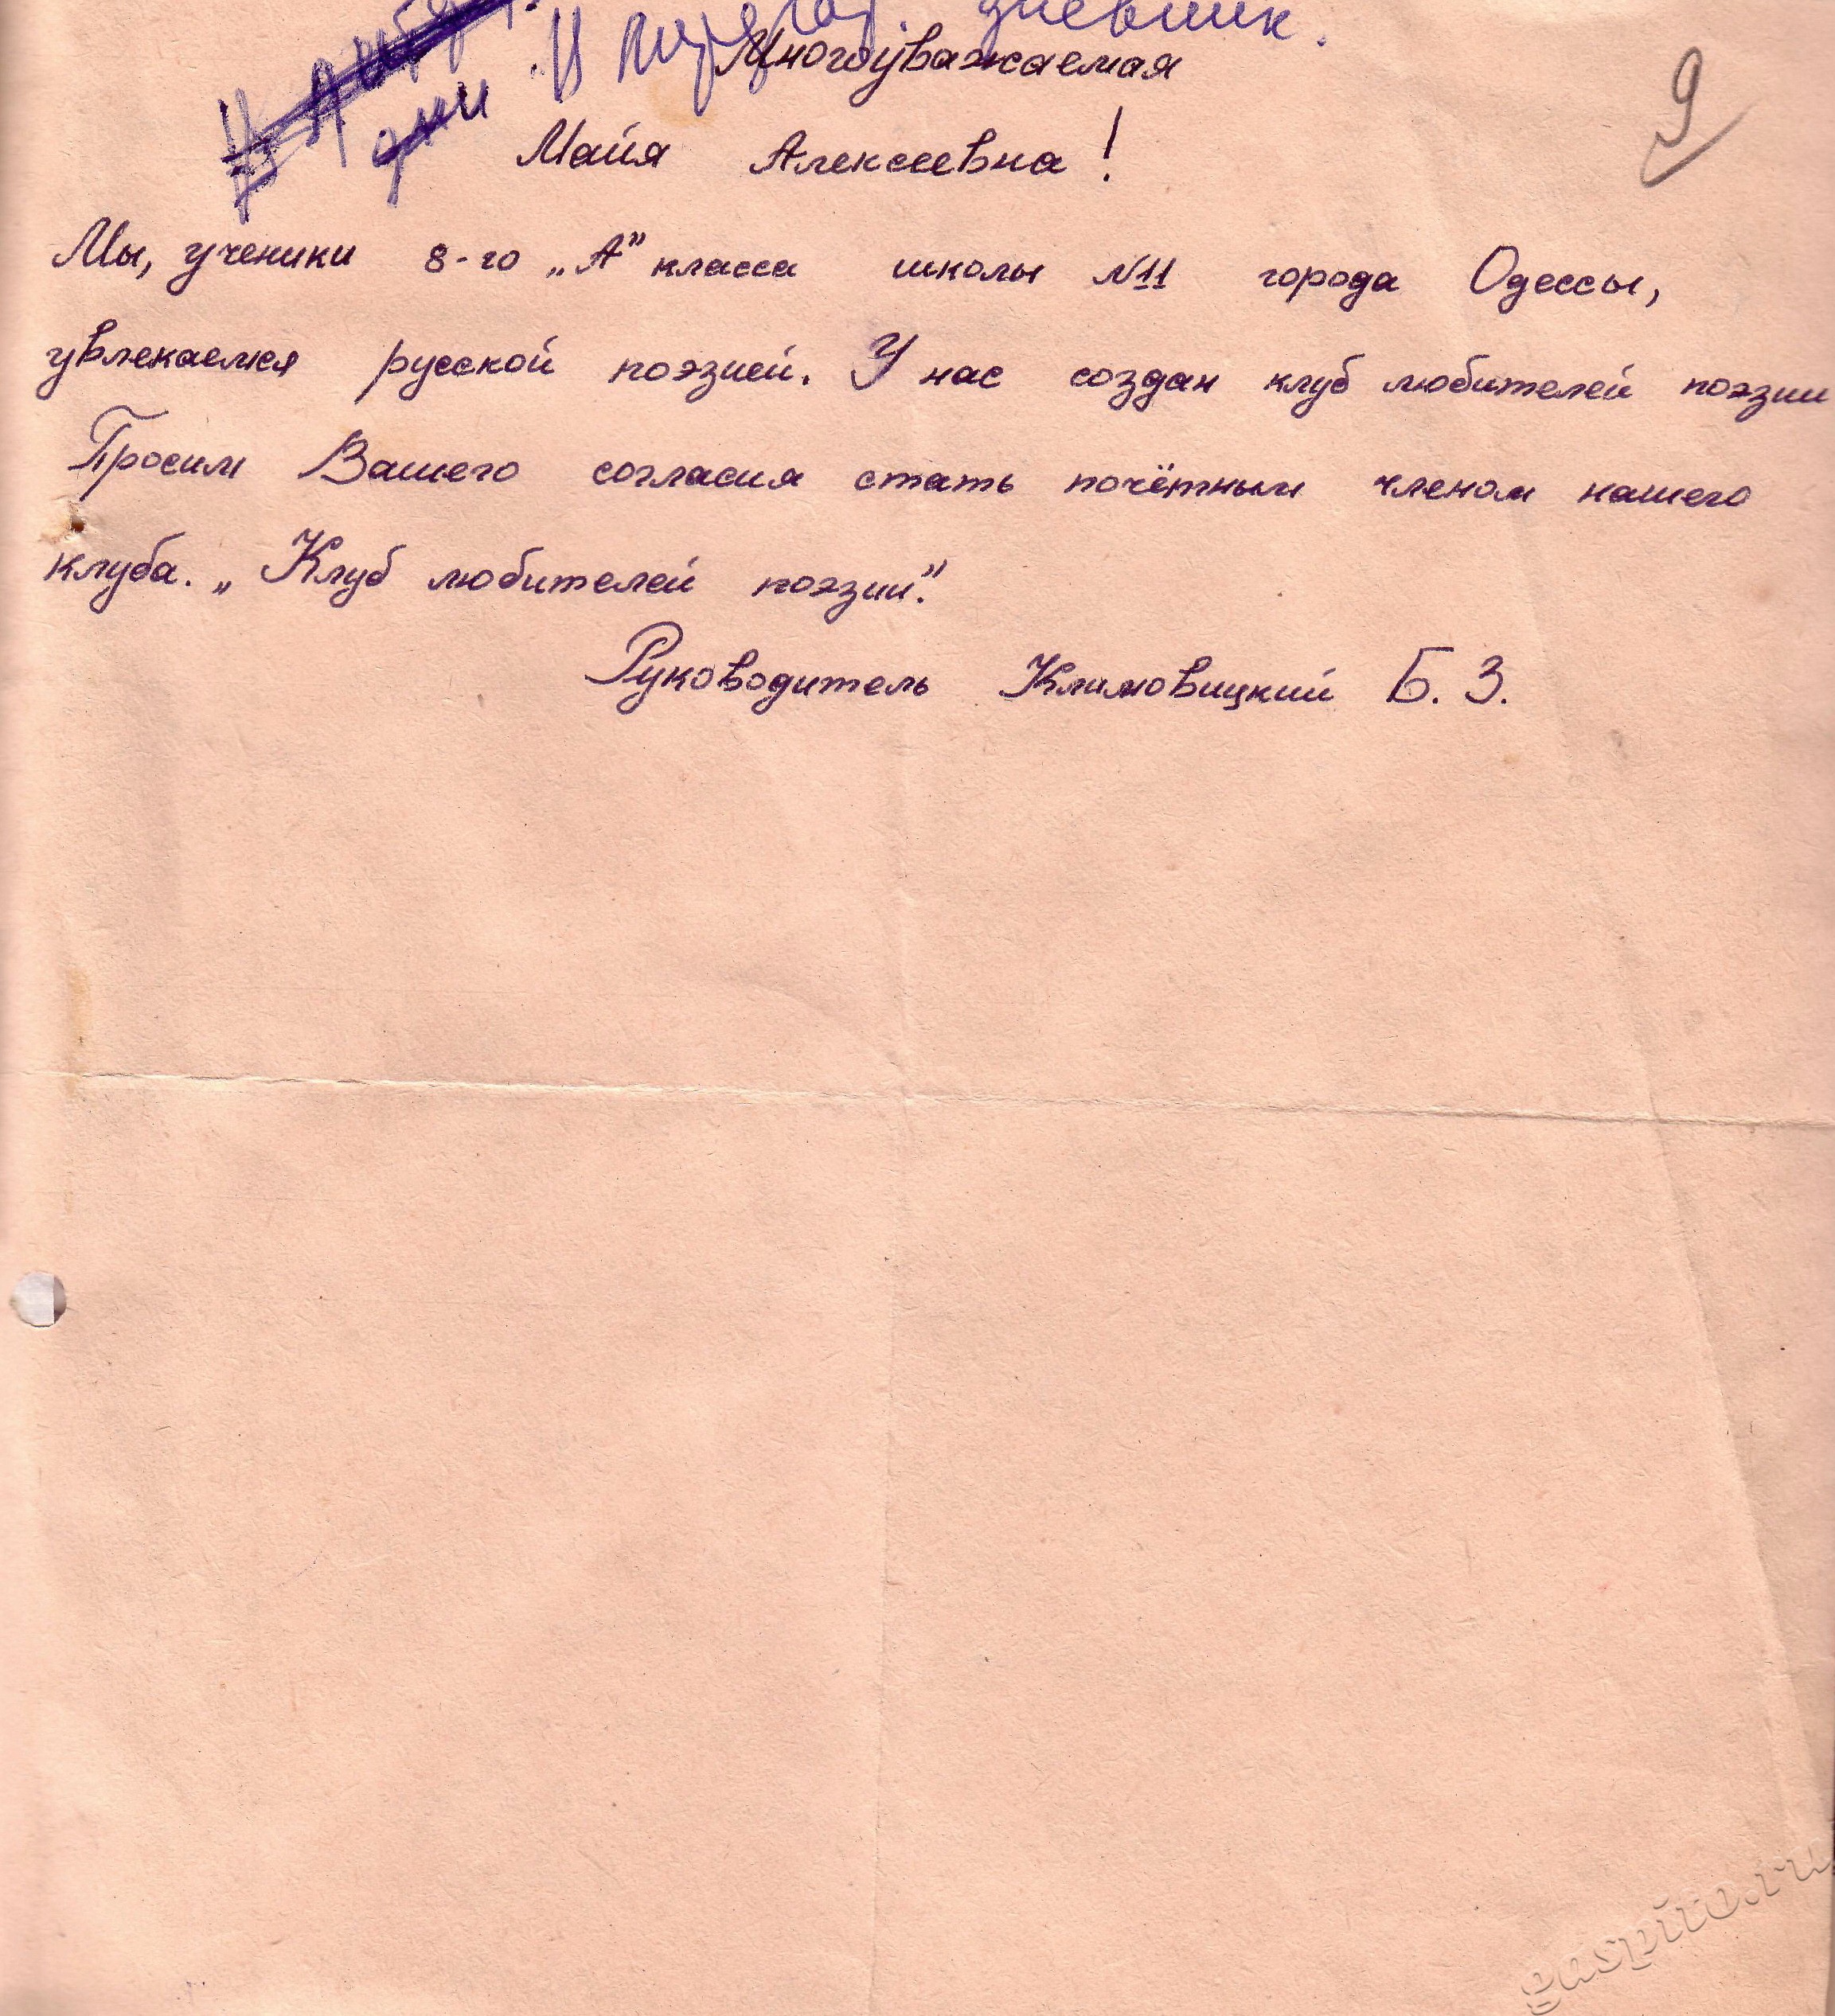 дневник.
дни
Многоуважаемая
9
Майя Алексеевна!
Мы, ученики 8-го „А” класса школы №11 города Одессы,
увлекаемся русской поэзией. У нас создан клуб любителей поэзии
Просим Вашего согласия стать почётным членом нашего
клуба. „Клуб любителей поэзии”.
Руководитель Климовицкий Б. З.
gaspito.ru